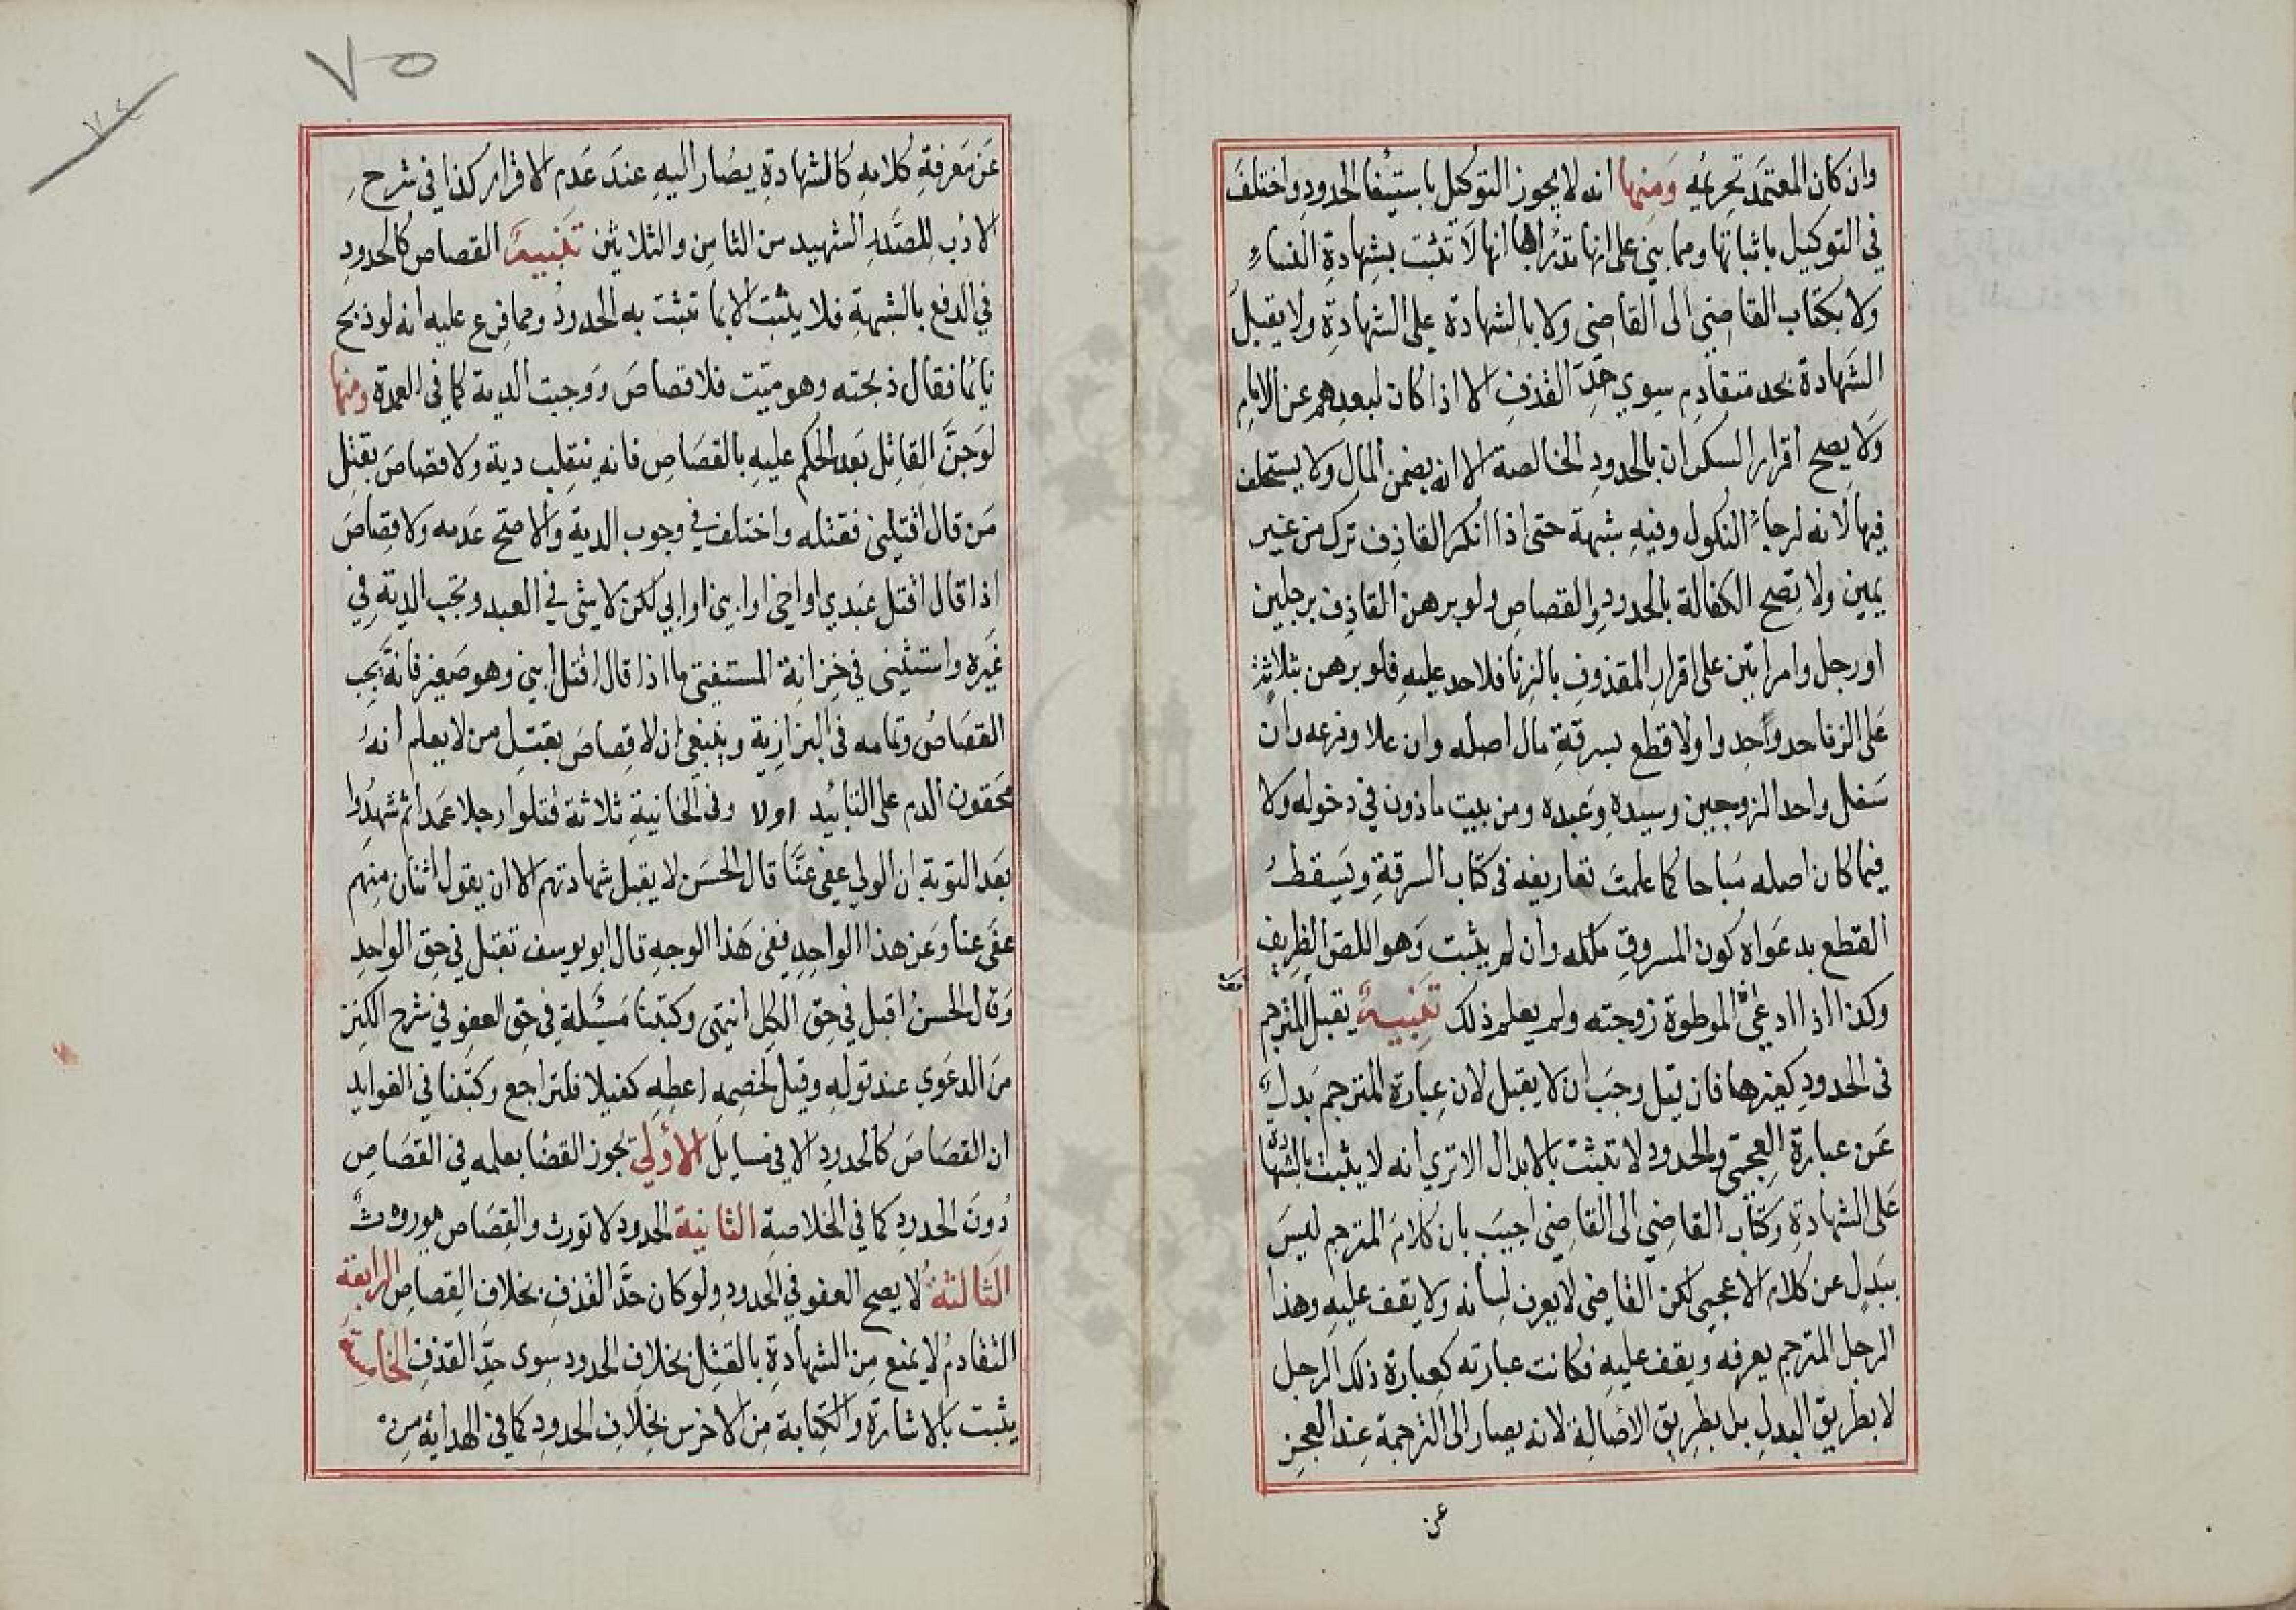 وان كان المعتمد تحريمه ومنها انه لا يجوز التوكيل باستيفا الحدود واختلف
في التوكيل باثباتها ومما بني على انها تدرا بها انها لا تثبت بشهادة النساء
ولا بكتاب القاضي الى القاضي ولا بالشهادة على الشهادة ولا يقبل
الشهادة بحد متقادم سوي حد القذف الا اذا كان لبعدهم عن الامام
ولا يصح اقرار السكران بالحدود الخالصة الا انه يضمن المال ولا يستحلف
فيها لانه لرجاء النكول وفيه شبهة حتى اذا انكر القاذف ترك من غير
يمين ولا تصح الكفالة بالحدود والقصاص ولو برهن القاذف برجلين
او رجل وامراتين على اقرار المقذوف بالزنا فلا حد عليه فلو برهن بثلاثة
على الزنا حد وحدوا ولا قطع بسرقة مال اصله وان علا وفرعه وان
سفل واحد الزوجين وسيده وعبده ومن بيت ماذون في دخوله ولا
فيما كان اصله مباحا كما علمت تفاريعه في كتاب السرقة ويسقط
القطع بدعواه كون المسروق ملكه وان لم يثبت وهو اللص الظريف
وكذا اذا ادعى ان الموطوة زوجته ولم يعلم ذلك تنبيه يقبل المترجم
في الحدود كغيرها فان قيل وجب ان لا يقبل لان عبارة المترجم بدل
عن عبارة العجمي والحدود لا تثبت بالابدال الا تري انه لا يثبت بالشهادة
على الشهادة وكتاب القاضي الى القاضي اجيب بان كلام المترجم ليس
ببدل عن كلام الاعجمي لكن القاضي لا يعرف لسانه ولا يقف عليه وهذا
الرجل المترجم يعرفه ويقف عليه فكانت عبارته كعبارة ذلك الرجل
لا بطريق البدل بل بطريق الاصالة لانه يصار الى الترجمة عند العجز
عن
٧٥
٧٤
عن معرفة كلامه كالشهادة يصار اليه عند عدم الاقرار كذا في شرح
الادب للصدر الشهيد من الثامن والثلاثين تنبيه القصاص كالحدود
في الدفع بالشبهة فلا يثبت الا بما تثبت به الحدود ومما فرع عليه انه لو ذبح
نائما فقال ذبحته وهو ميت فلا قصاص ووجبت الدية كما في العمدة ومنها
لو جن القاتل بعد الحكم عليه بالقصاص فانه ينقلب دية ولا قصاص بقتل
من قال اقتلني فقتله واختلف في وجوب الدية والاصح عدمه ولا قصاص
اذا قال اقتل عبدي او اخي او ابني او ابي لكن لا شي في العبد وتجب الدية في
غيره واستثني في خزانة المستفتي ما اذا قال اقتل ابني وهو صغير فانه يجب
القصاص وتمامه في البزازية وينبغي ان لا قصاص بقتل من لا يعلم انه
محقون الدم على التابيد اولا وفي الخانية ثلاثة قتلوا رجلا عمدا ثم شهدوا
بعد التوبة ان الولي عفي عنا قال الحسن لا يقبل شهادتهم الا ان يقول اثنان منهم
عفي عنا وعن هذا الواحد ففي هذا الوجه قال ابو يوسف تقبل في حق الواحد
وقال الحسن اقبل في حق الكل انتهى وكتبنا مسئلة في حق العفو في شرح الكنز
من الدعوي عند قوله وقيل لخصمه اعطه كفيلا فلتراجع وكتبنا في الفوايد
ان القصاص كالحدود الا في مسايل الاولي يجوز القضا بعلمه في القصاص
دون الحدود كما في الخلاصة الثانية الحدود لا تورث والقصاص موروث
الثالثة لا يصح العفو في الحدود ولو كان حد القذف بخلاف القصاص الرابعة
التقادم لا يمنع من الشهادة بالقتل بخلاف الحدود سوى حد القذف الخامسة
يثبت بالاشارة والكتابة من الاخرس بخلاف الحدود كما في الهداية من